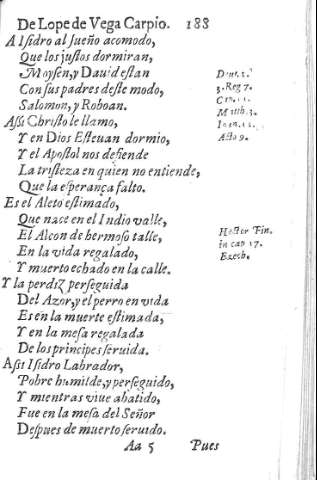 De Lope de Vega Carpio. 188
A Isidro al sueño acomodo,
Que los justos dormiran,
Moysen, y Dauid estan
Con sus padres deste modo,
Salomon, y Roboan.
Assi Christo le llamo,
Y en Dios Esteuan dormio,
Y el Apostol nos defiende
La tristeza en quien no entiende,
Que la esperança falto.
Es el Aleto estimado,
Que nace en el Indio valle,
El Alcon de hermoso talle,
En la vida regalado,
Y muerto echado en la calle.
Y la perdiz perseguida
Del Azor, y el perro en vida
Es en la muerte estimada,
Y en la mesa regalada
De los principes seruida.
Assi Isidro Labrador,
Pobre humilde, y perseguido,
Y mientras viue abatido,
Fue en la mesa del Señor
Despues de muerto seruido.
Aa 5 Pues
3. Reg 7.
Matth. 3.
Acto 9.
Hester Fin.
in cap 17.
Ezech.